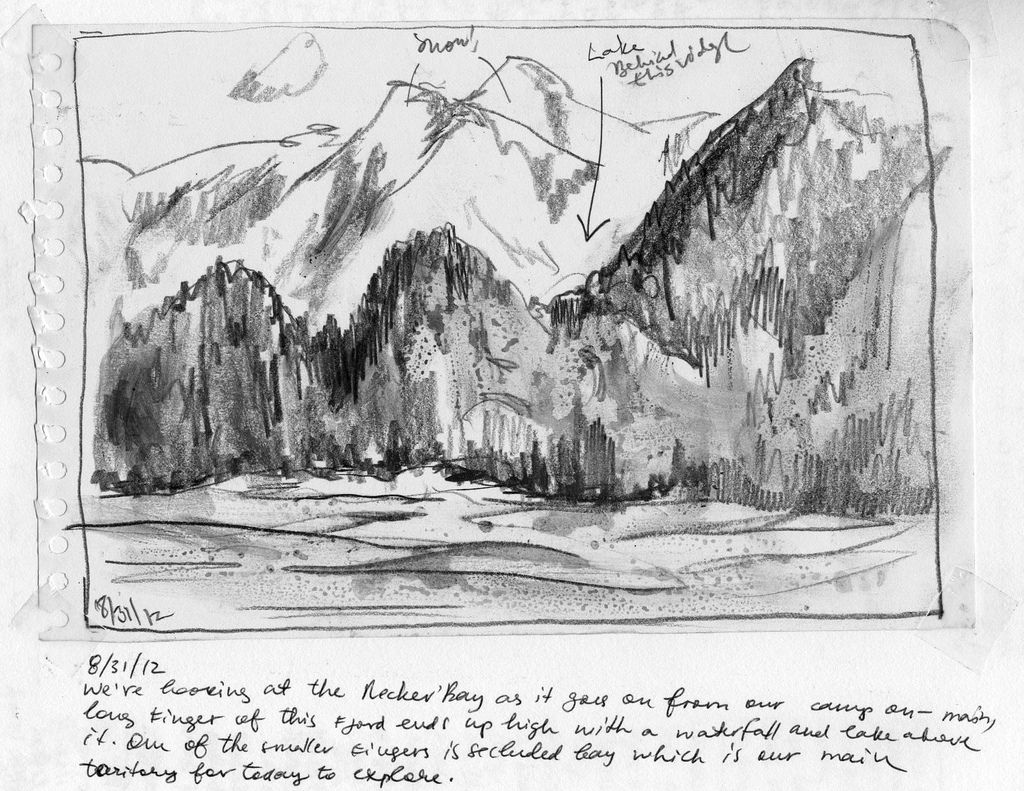 Snow!
Lake
Behind
this ridge
8/31/12
8/31/12
We're looking at the Necker Bay as it goes on from our camp on – main,
long finger of this Fjord ends up high with a waterfall and lake above
it. One of the smaller fingers is secluded bay which is our main
toritory for today to explore.